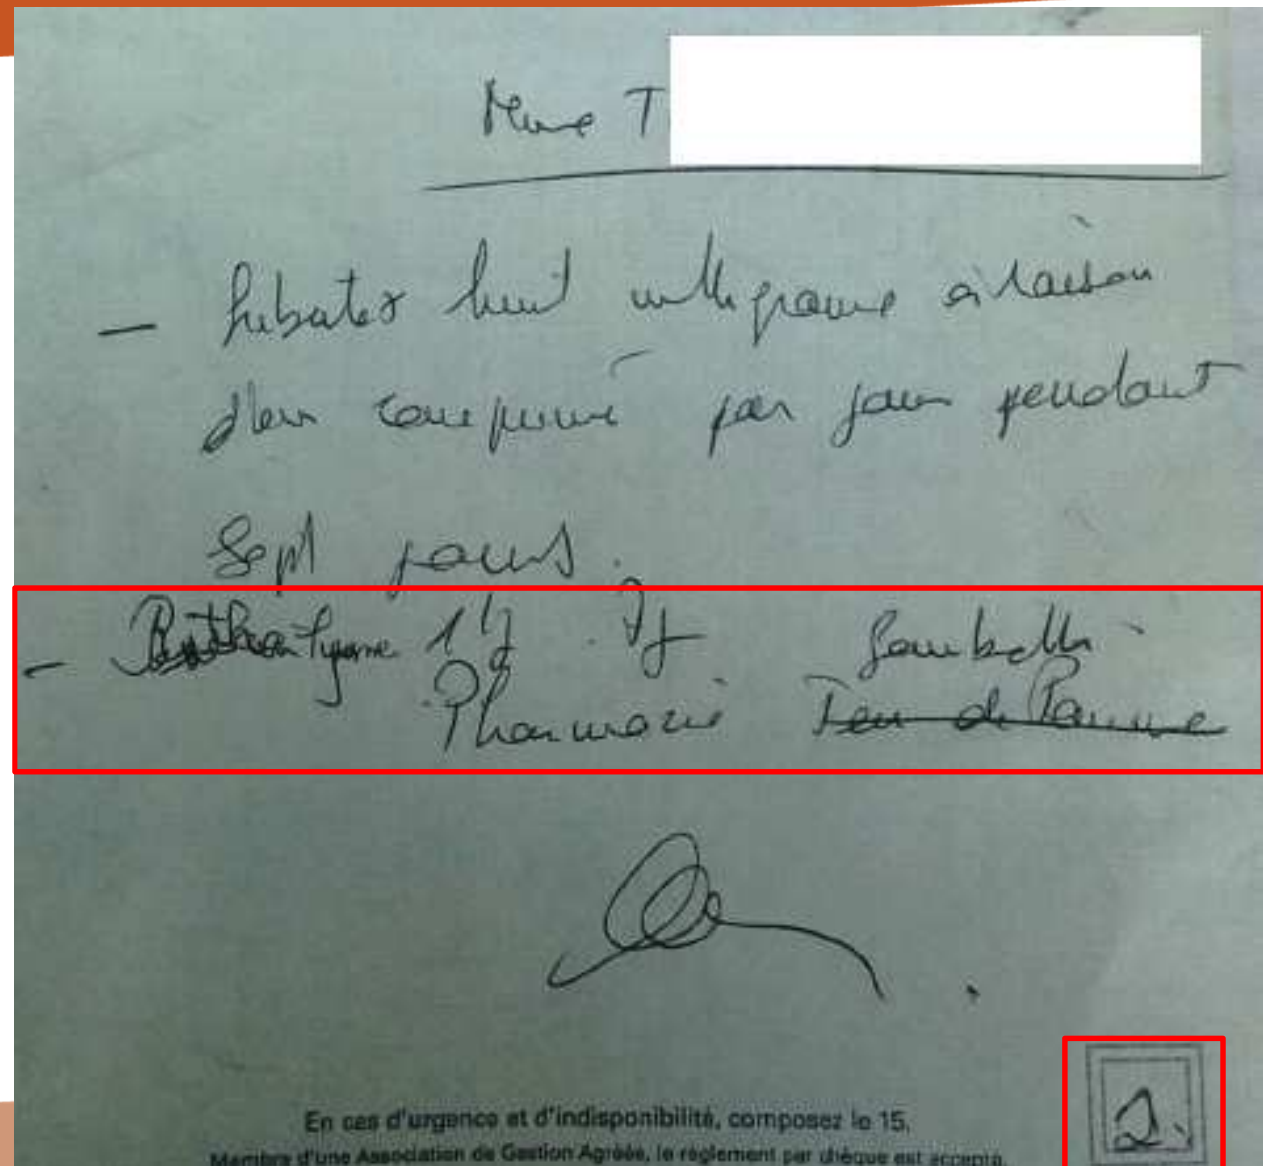 Mme T
— Subutex huit milligramme à raison
d'un comprimé par jour pendant
Sept jours.
— 1 /j 7j Gambetta
Pharmacie Jeu de Paume
2.
En cas d'urgence et d'indisponibilité, composez le 15.
Membre d'une Association de Gestion Agréée, le règlement par chèque est accepté.